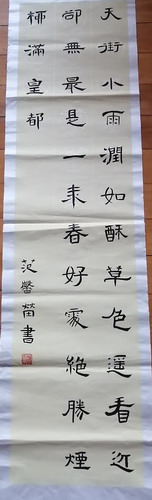 天街小雨潤如酥草色遥看近
卻無最是一年春好處絶勝煙
柳滿皇都
范馨蕾書